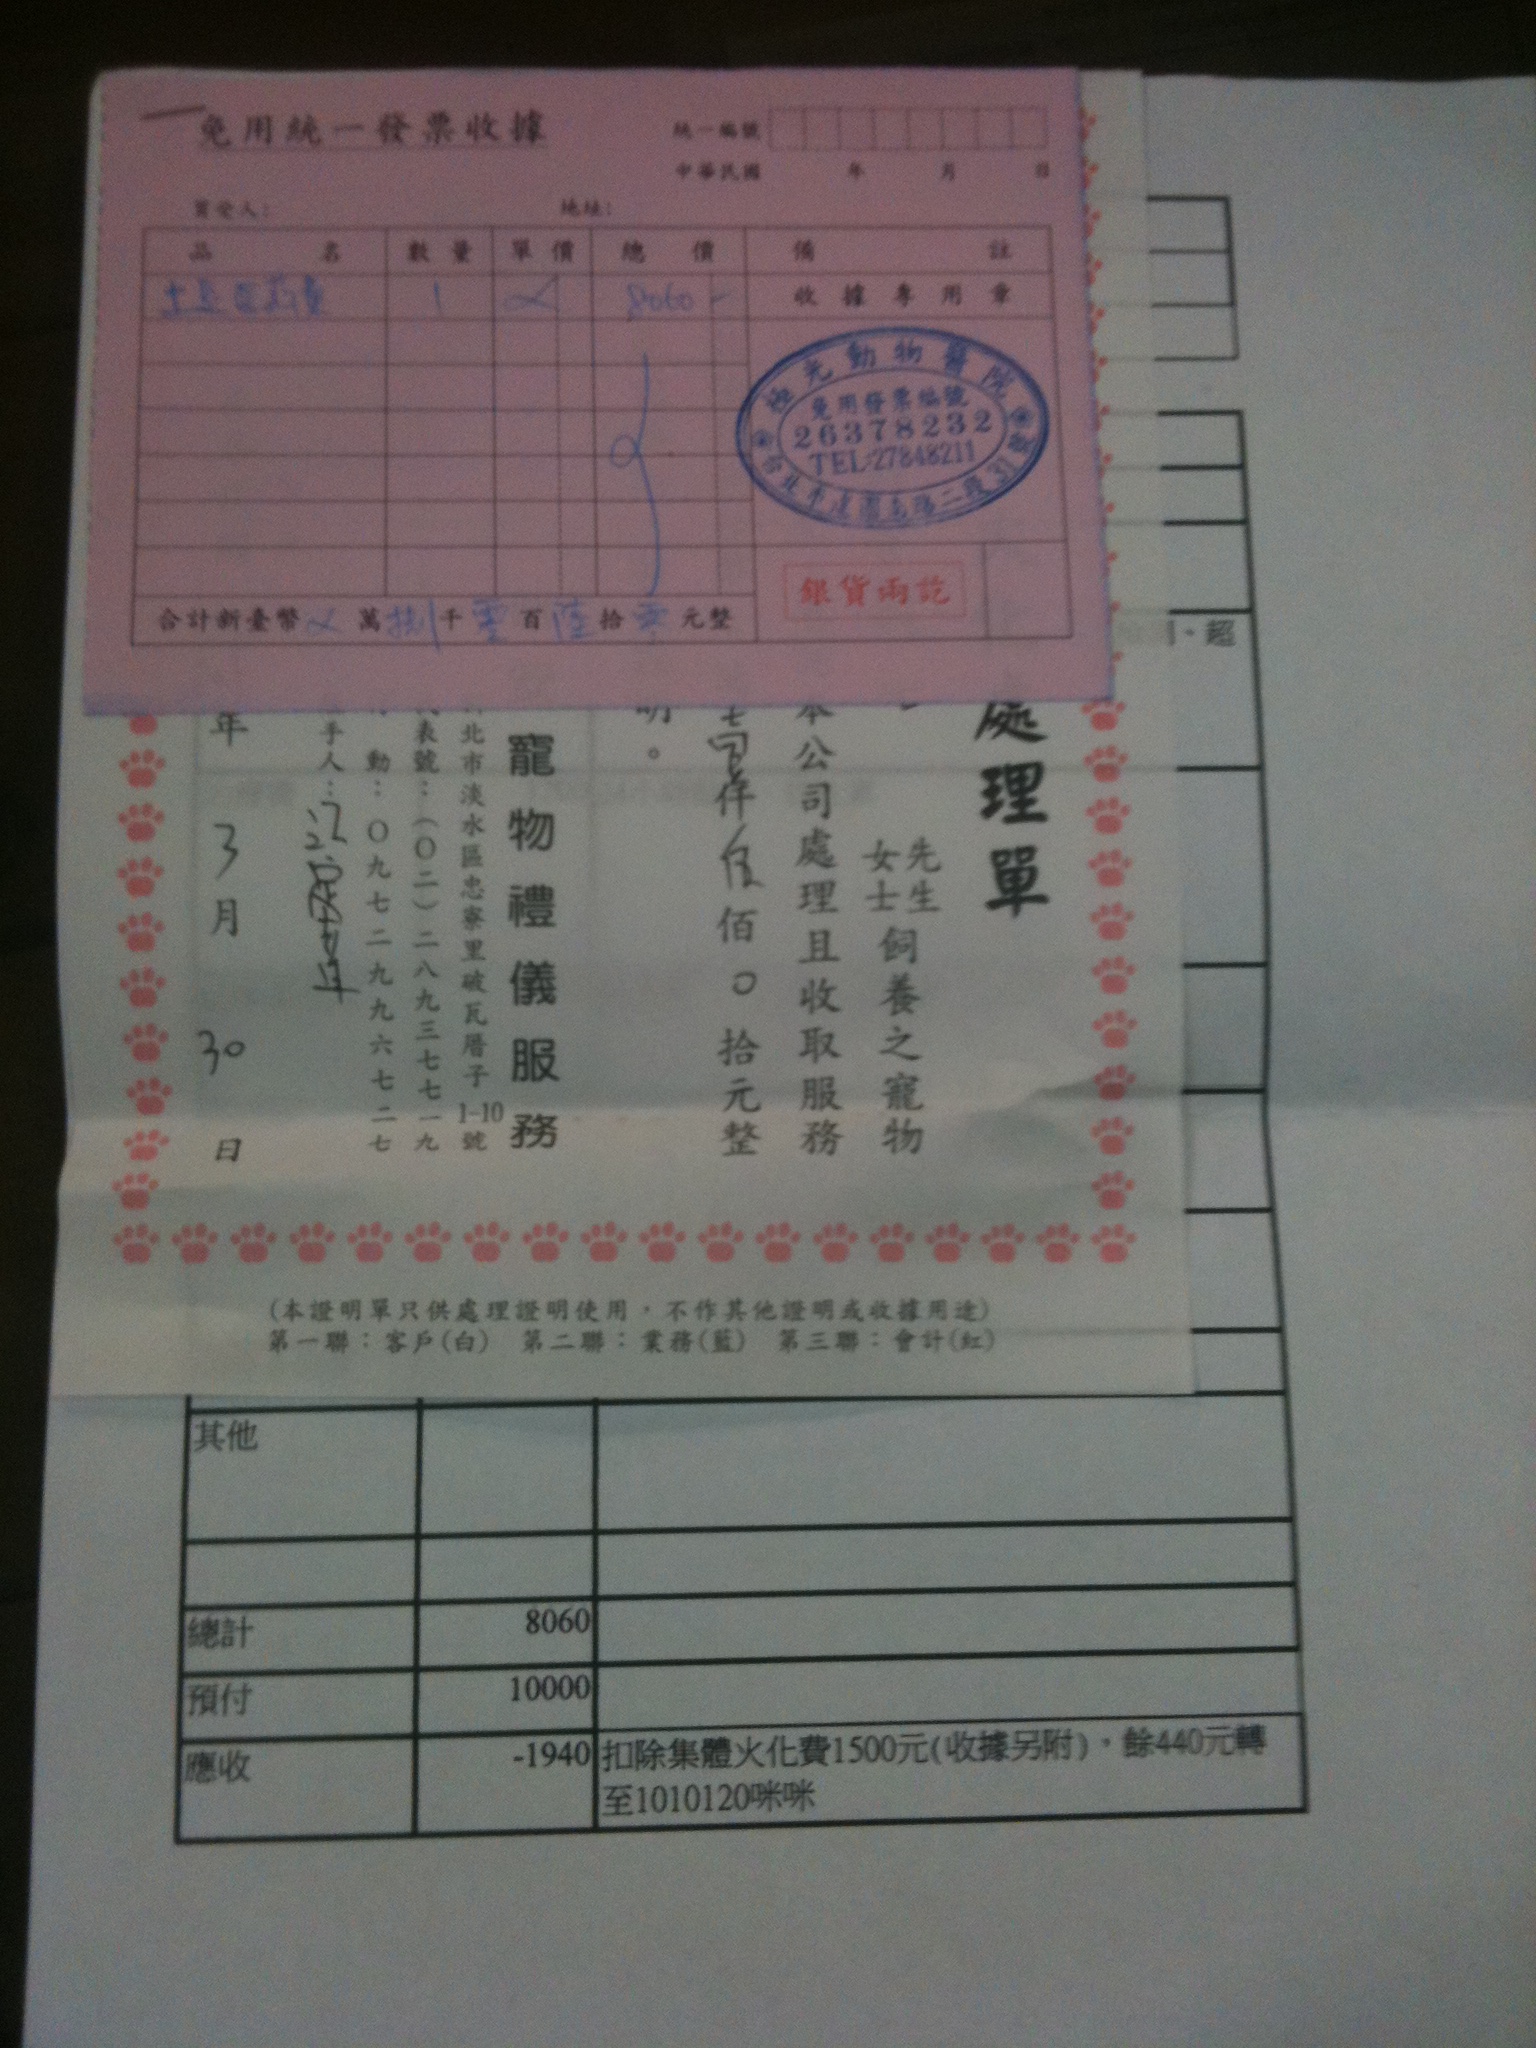 免用統一發票收據
統一編號
中華民國 年 月 日
買受人: 地址:
品名 數量 單價 總價 備註
1 8060 收據專用章
極光動物醫院
免用發票編號
26378232
TEL:27848211
台北市建國南路二段31號
銀貨兩訖
合計新臺幣 萬捌千零百陸拾零元整
、超
處理單
先生
女士飼養之寵物
本公司處理且收取服務
仟伍佰0拾元整
明。
寵物禮儀服務
北市淡水區忠寮里破瓦厝子1-10號
代表號:(〇二)二八九三七七一九
動:〇九七二九九六七二七
手人:
年3月30日
(本證明單只供處理證明使用,不作其他證明或收據用途)
第一聯:客戶(白) 第二聯:業務(藍) 第三聯:會計(紅)
其他
總計 8060
預付 10000
應收 -1940 扣除集體火化費1500元(收據另附),餘440元轉
至1010120咪咪